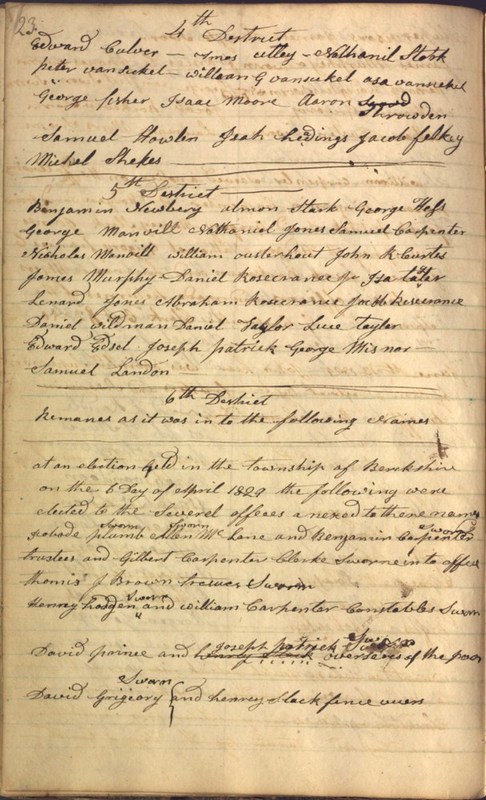 23
4th District
Edward Culver – Amos utley – Nathanil Stark
Peter vansickel – william G vansickel asa vansickel
George fisher Isaac Moore Aaron
Throwden
Samuel Howlen Jeah hedings Jacob felkey
Michel Shekes
5th District
Benjamin Newbery almon Stark George Hess
George Manvill Nathaniel Jones Samuel Carpenter
Nicholas Manvill william ousterhout John R Curtes
James Murphy Daniel Rosecrance Jr Isa
Lenard Jones Abraham Rosecrance Jacob Rosecrance
Daniel wildman Daniel Taylor Luce Taylor
Edward Edsel Joseph patrick George Misnar
Samuel Landon
6th District
Remanes as it was in to the following Names
at an election held in the township of Berkshire
on the 6 Day of April 1829 the following were
elected to the Severel offeces anexed to there names
Sworn Sworn Sworn
plumb Allen Mc Lane and Benjamin Carpenter
trustees and Gilbert Carpenter Clerke Sworne in to office
thomis J Brown Sworn
Sworn
Henrey hodgen and william Carpenter Constables Sworn
Joseph patrick
David prince and overseres of the poor
Sworn
David Grigeory and henrey Slack fence vuers